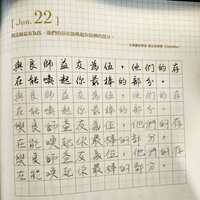 [ Jun. 22 ]
與良師益友為伍，他們的存在能喚起你最棒的部分。
與良師益友為伍，他們的存
在能喚起你最棒的部分。
與良師益友為伍，他們的存
在能喚起你最棒的部分。
與良師益友為伍，他們的存
在能喚起你最棒的部分。
與良師益友為伍，他們的存
在能喚起你最棒的部分。